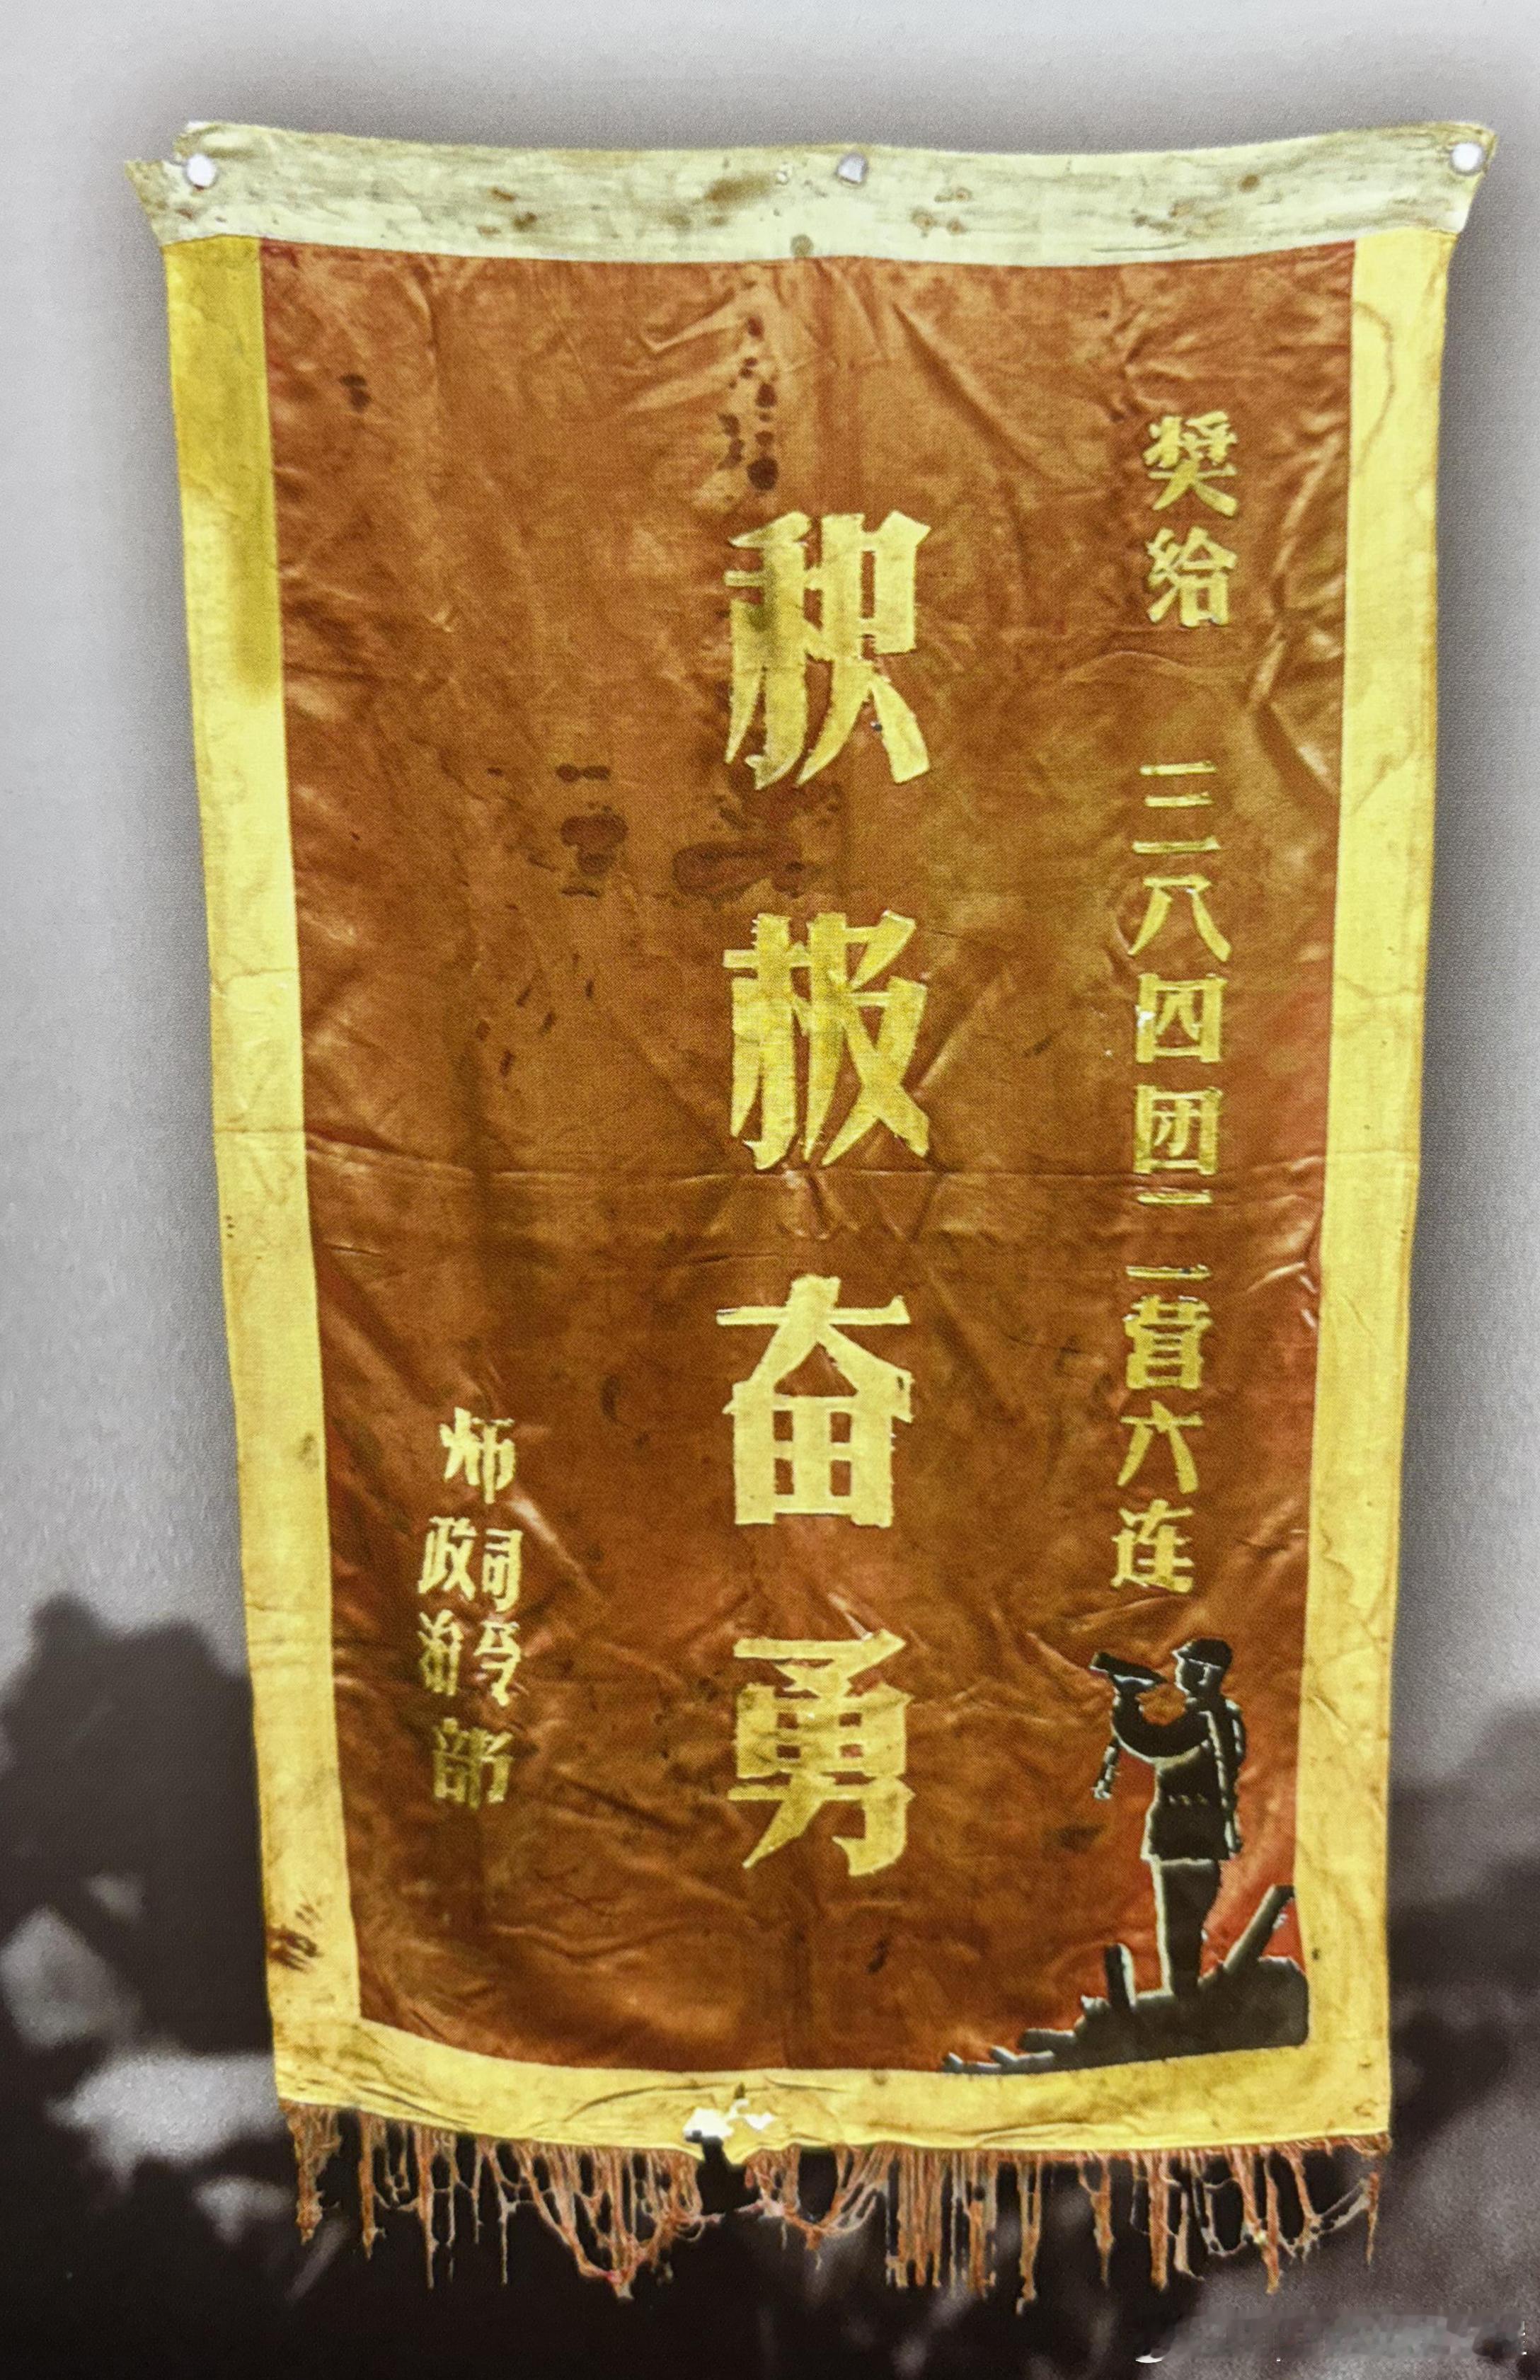 奬给 三八四团二营六连
积极奋勇
师
司令
政治
部